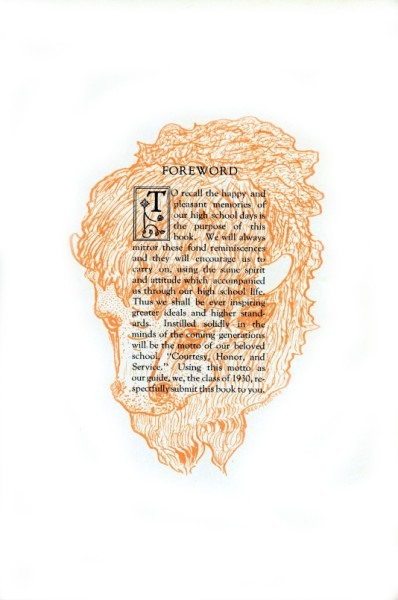 FOREWORD
TO recall the happy and
pleasant memories of
our high school days is
the purpose of this
book. We will always
mirror these fond reminiscences
and they will encourage us to
carry on, using the same spirit
and attitude which accompanied
us through our high school life.
Thus we shall be ever inspiring
greater ideals and higher stand-
ards. Instilled solidly in the
minds of the coming generations
will be the motto of our beloved
school, "Courtesy, Honor, and
Service." Using this motto as
our guide, we, the class of 1930, re-
spectfully submit this book to you.